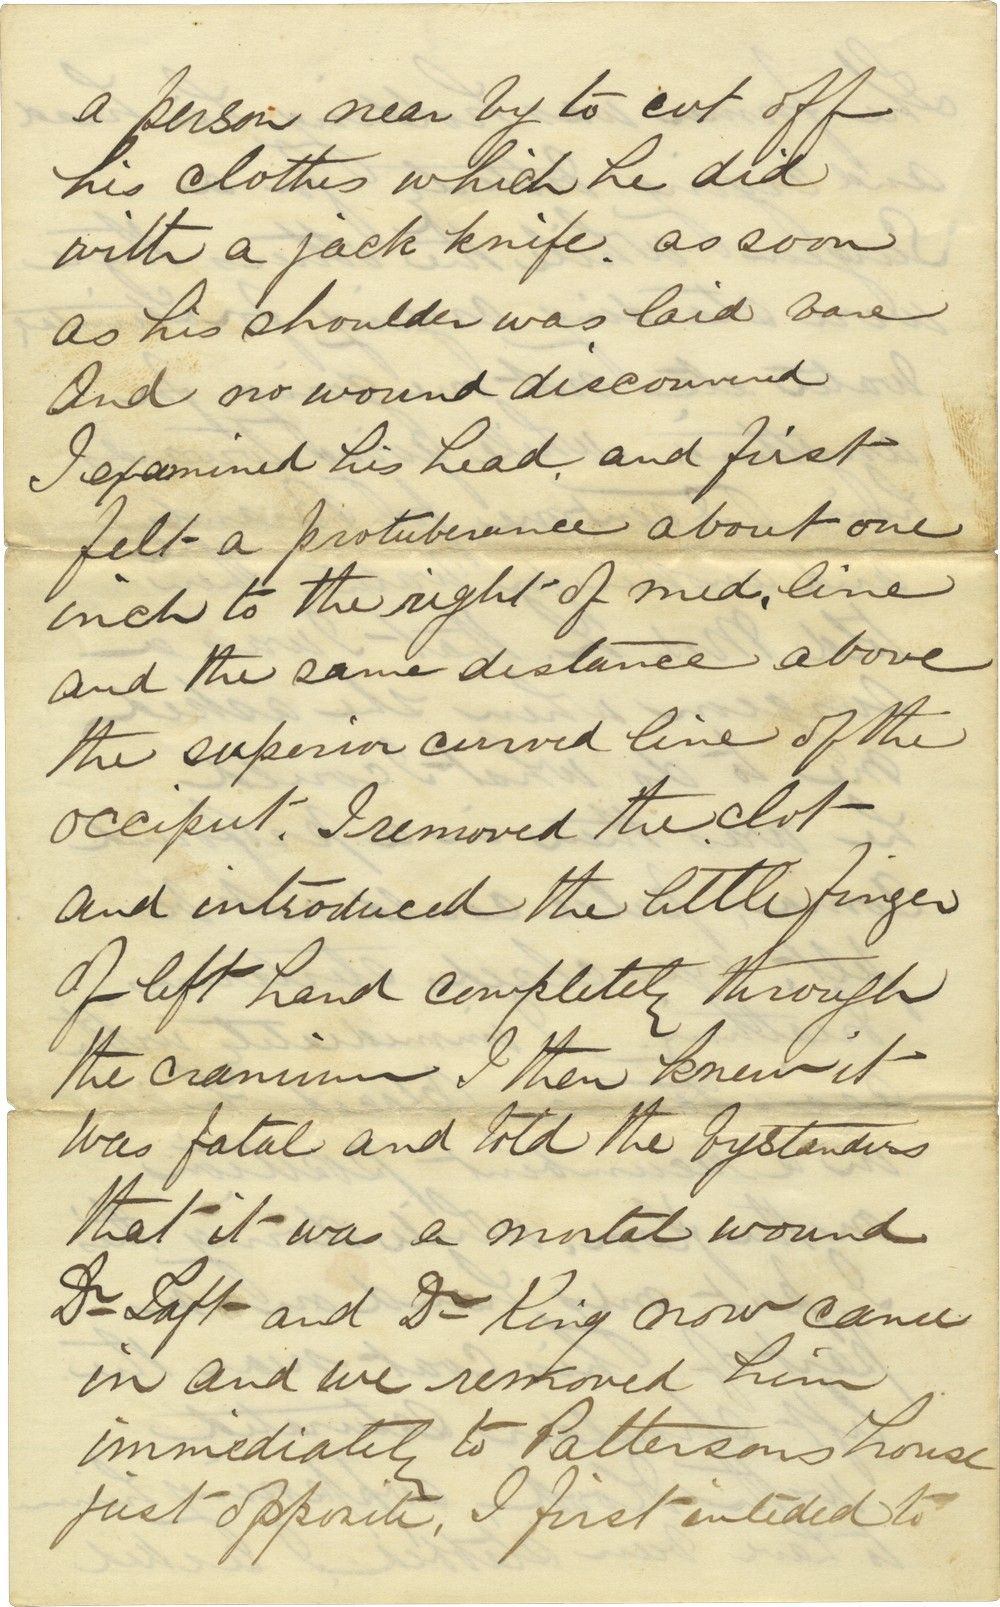 a person near by to cut off
his clothes which he did
with a jack knife. as soon
as his shoulder was laid bare
And no wound discouvered
I examined his head. and first
felt a protuberance about one
inch to the right of med. line
and the same distance above
the superior curved line of the
occiput. I removed the clot
and introduced the little finger
of left hand completely through
the cranium I then knew it
was fatal and told the bystanders
that it was a mortal wound
Dr Taft and Dr King now came
in and we removed him
immediately to Pattersons house
just opposite, I first inteded to